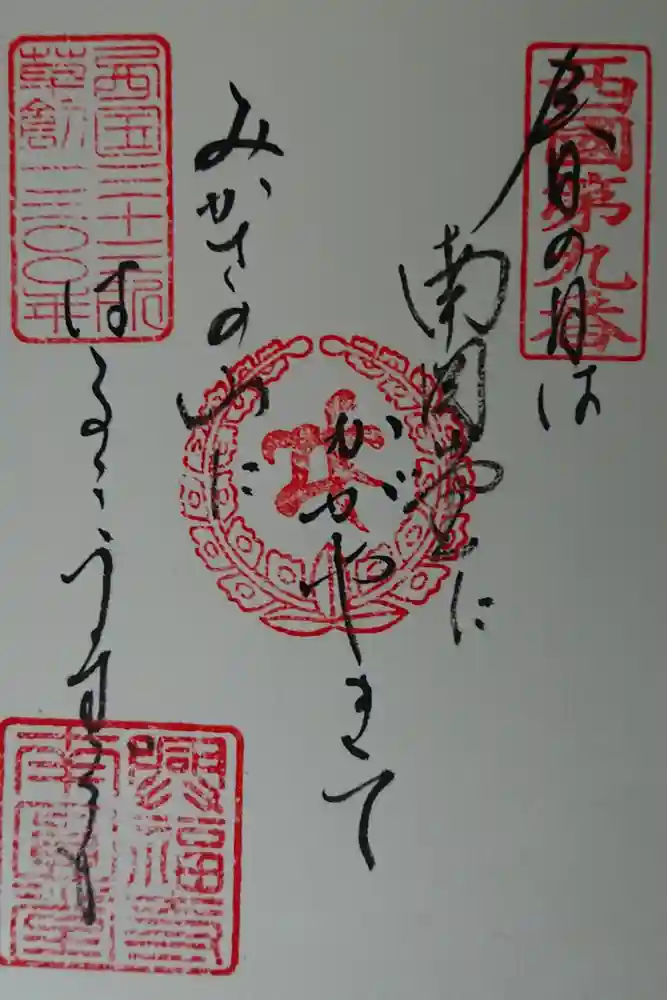 西國第九番
春の日は
南圓堂に
かがやきて
みかさの山に
はるゝうすくも
西国三十三所
草創一三〇〇年
興福寺
南圓堂